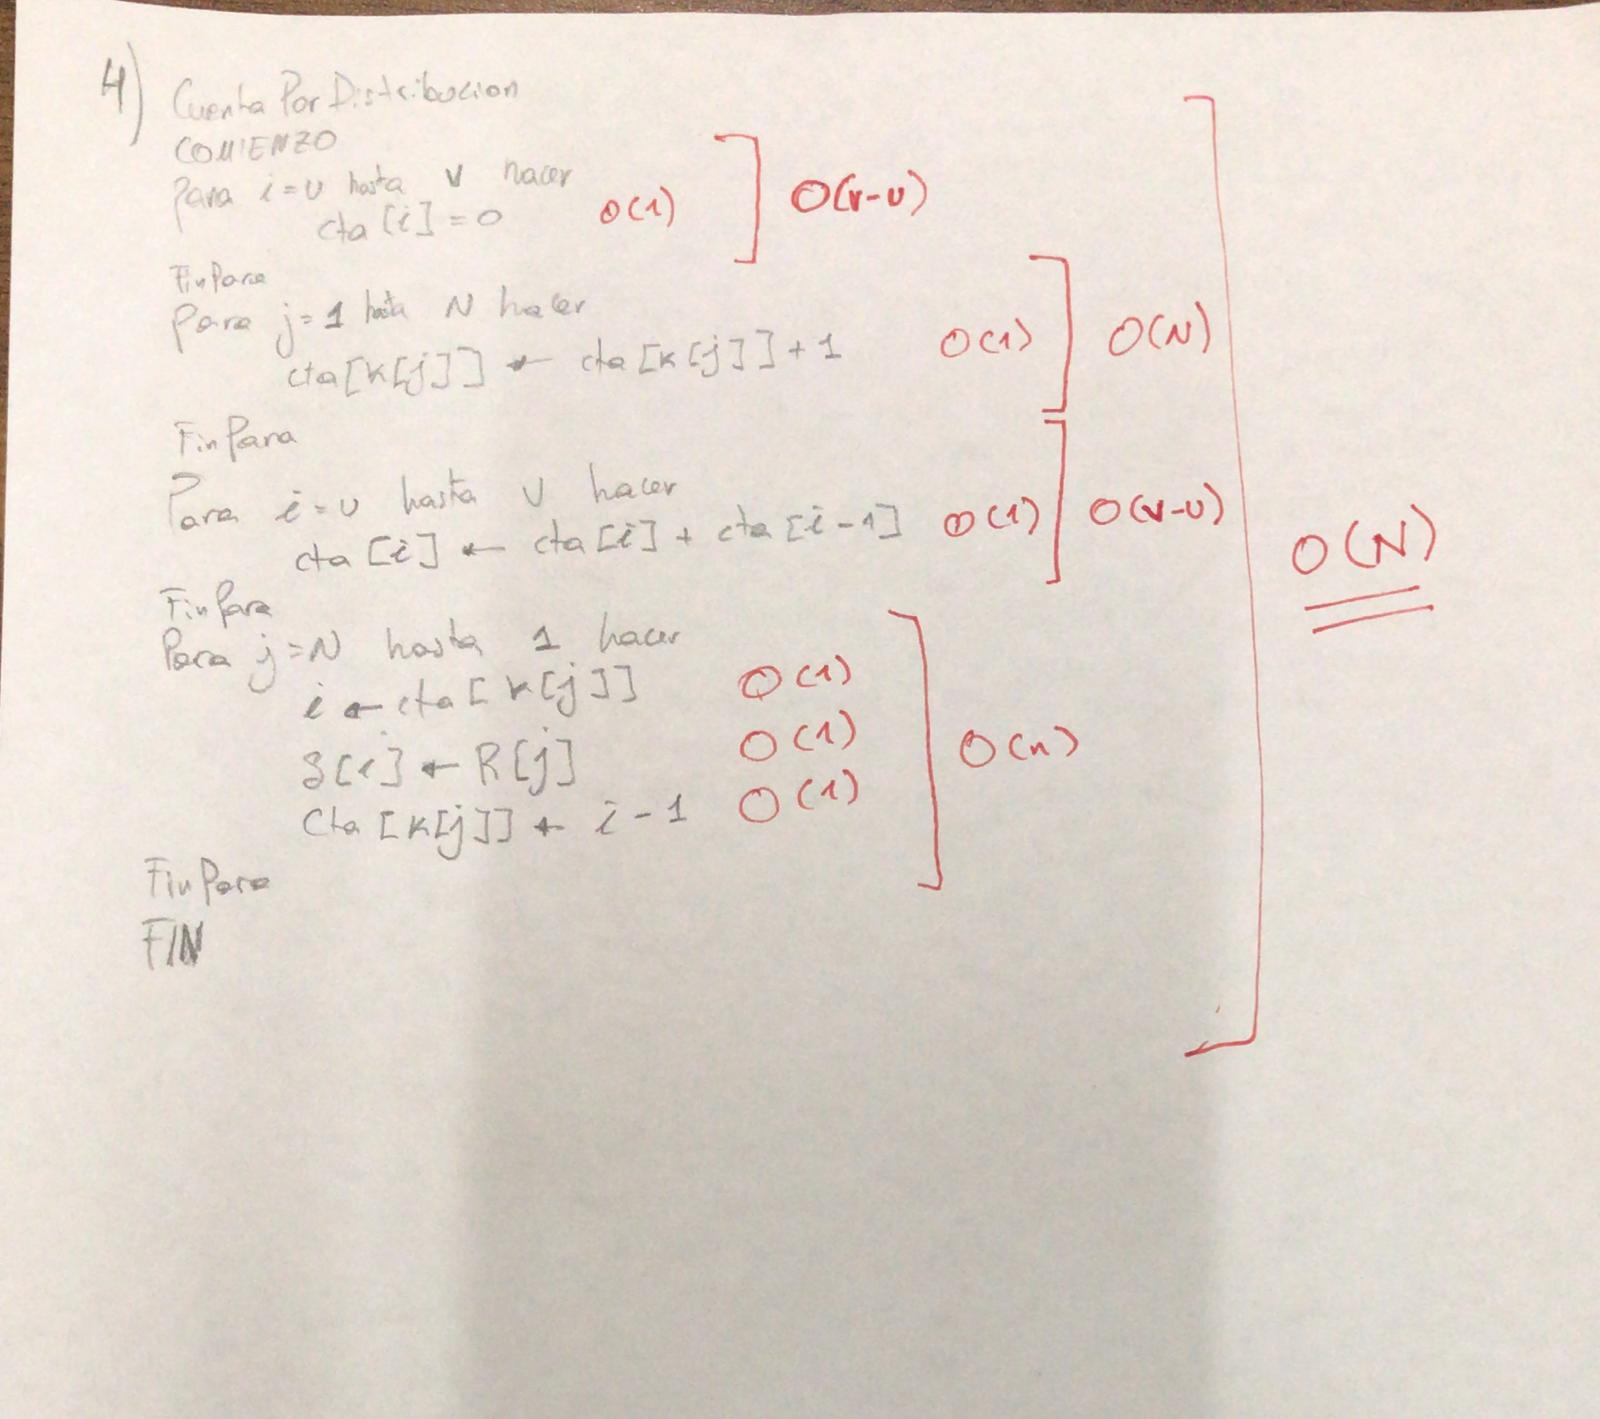 4) Cuenta Por Distribucion
COMIENZO
Para i=u hasta v hacer
cta [i] = 0 O(1) O(v-u)
FinPara
Para j=1 hasta N hacer
cta[k[j]] ← cta[k[j]]+1 O(1) O(N)
FinPara
Para i=u hasta v hacer
cta [i] ← cta[i] + cta[i-1] O(1) O(v-u)
O(N)
FinPara
Para j=N hasta 1 hacer
i ← cta[k[j]] O(1)
S[i] ← R[j] O(1) O(n)
Cta [k[j]] ← i-1 O(1)
FinPara
FIN